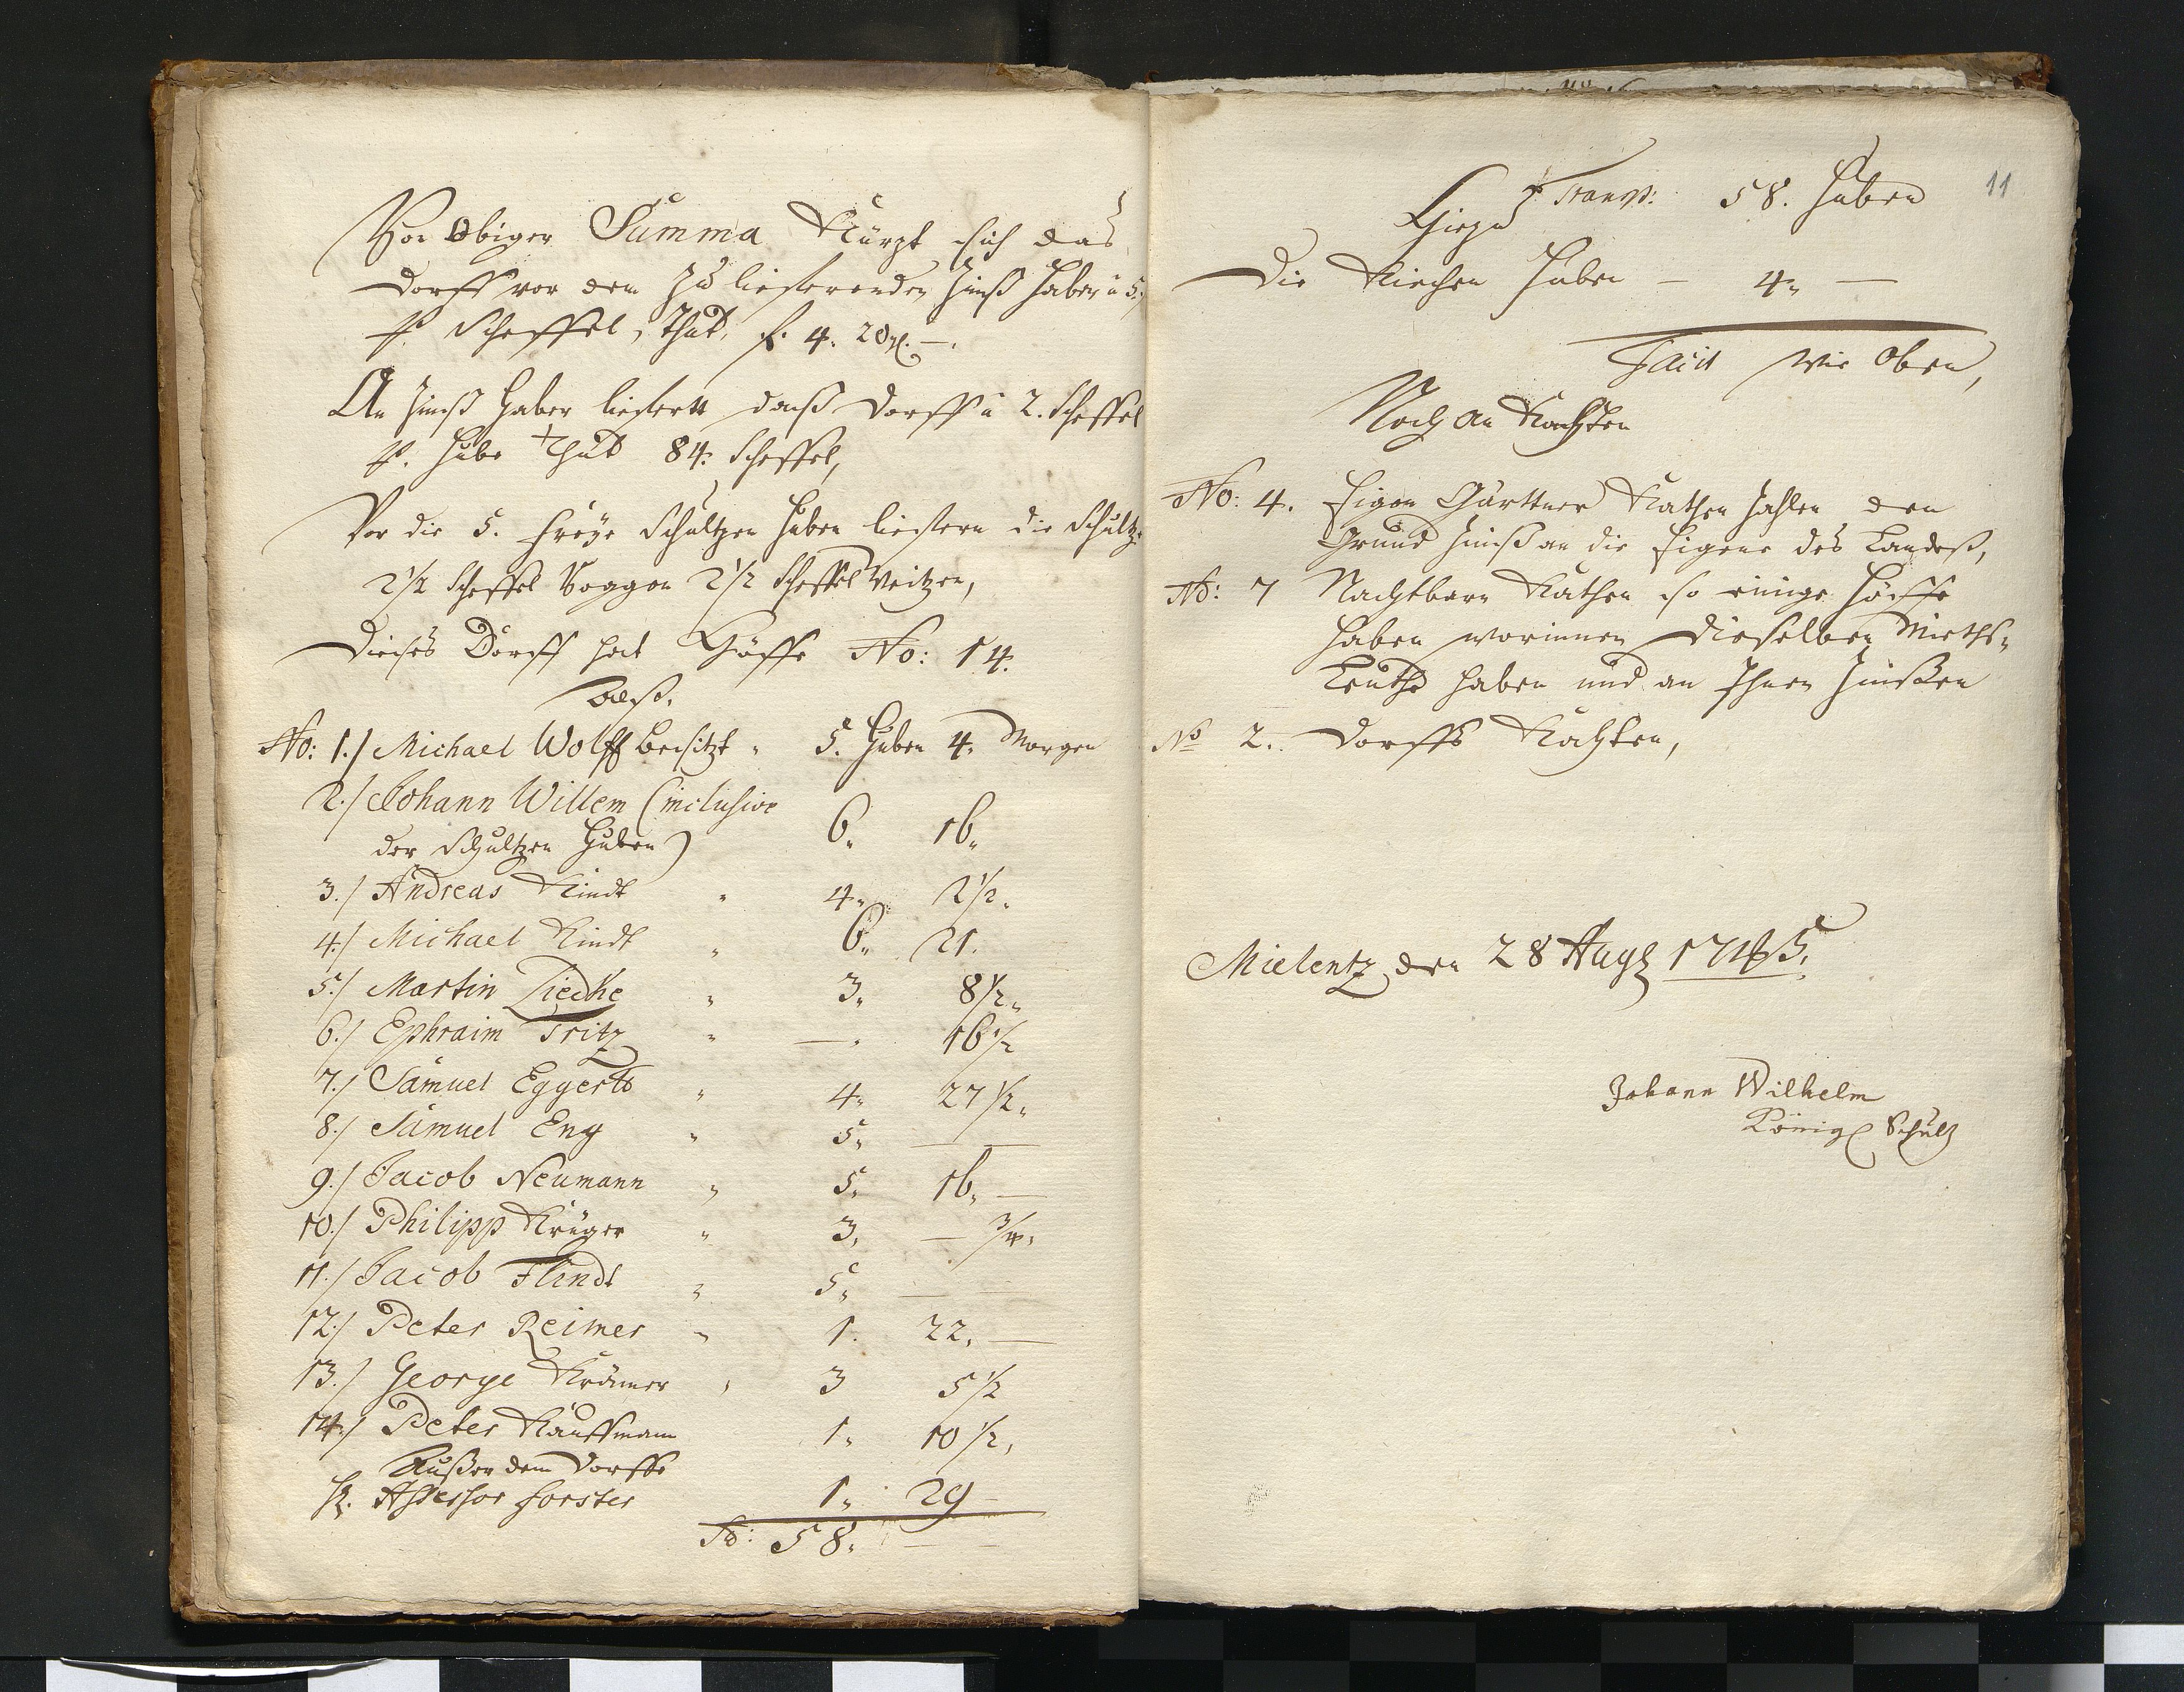 Von Obiger Summa Kürzt sich das
Dorff vor den zu lieferenden Zinß Haber à 5.
p. Scheffel, thut, f. 4. 20 gl. —.
An Zinß Haber liefert daß Dorff à 2. Scheffel
p. Hube thut 84. Scheffel,
Vor die 5. freye Schultzen Huben liefern die Schultz:
2 1/2 Scheffel Roggen 2 1/2 Scheffel Weitzen,
Dieses Dorff hat Höffe No: 14.
No: 1./ Michael Wolff besitzt " 5. Huben 4„ Morgen
2./ Johann Willem (inclusive
der Schultzen Huben) 6„ 16„
3./ Andreas Kindt " 4„ 2 1/2„
4./ Michael Kindt " 6„ 21.
5./ Martin Ziedke " 3„ 8 1/2„
6./ Ephraim Fritz " — „ 16 1/2
7./ Samuel Eggerts " 4„ 27 1/2„
8./ Samuel Eng " 5„ —
9./ Jacob Neumann " 5„ 16„ —
10./ Philipp Krüger " 3„ — 3/4„
11./ Jacob Flindt " 5„ — —
12./ Peter Reimer " 1. 22„ —
13./ George Krämer " 3 5 1/2
14./ Peter Kauffmann 1„ 10 1/2„
Außer dem Dorffe
H. Assessor Forster 1„ 29 —
No: 58„ — —
11
Transp: 58. Huben
Hiezu
Die Kirchen Huben — 4„ —
Facit wie Oben,
Noch an Kathen
No: 4. Eigen Gärttner Kathen zahlen den
Grund Zinß an die Eigene des Landeß,
No: 7 Nachtbarn Kathen so einige Höffe
haben worinnen Dieselben Mieths„
Leuthe haben und an Ihnen Zinßen
No 2. Dorffs Kathen,
Mielentz den 28 Augt 1745.
Johann Wilhelm
Königl Schultz